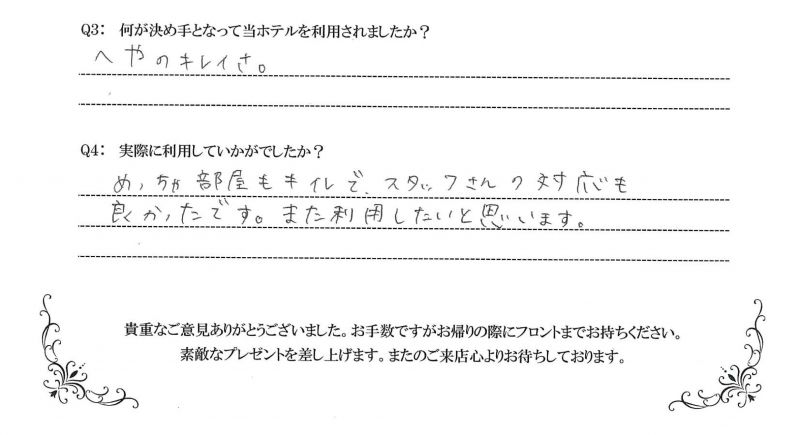 Q3: 何が決め手となって当ホテルを利用されましたか？
へやのキレイさ。
Q4: 実際に利用していかがでしたか？
めっちゃ部屋もキイレで、スタッフさんの対応も
良かったです。また利用したいと思います。
貴重なご意見ありがとうございました。お手数ですがお帰りの際にフロントまでお持ちください。
素敵なプレゼントを差し上げます。またのご来店心よりお待ちしております。